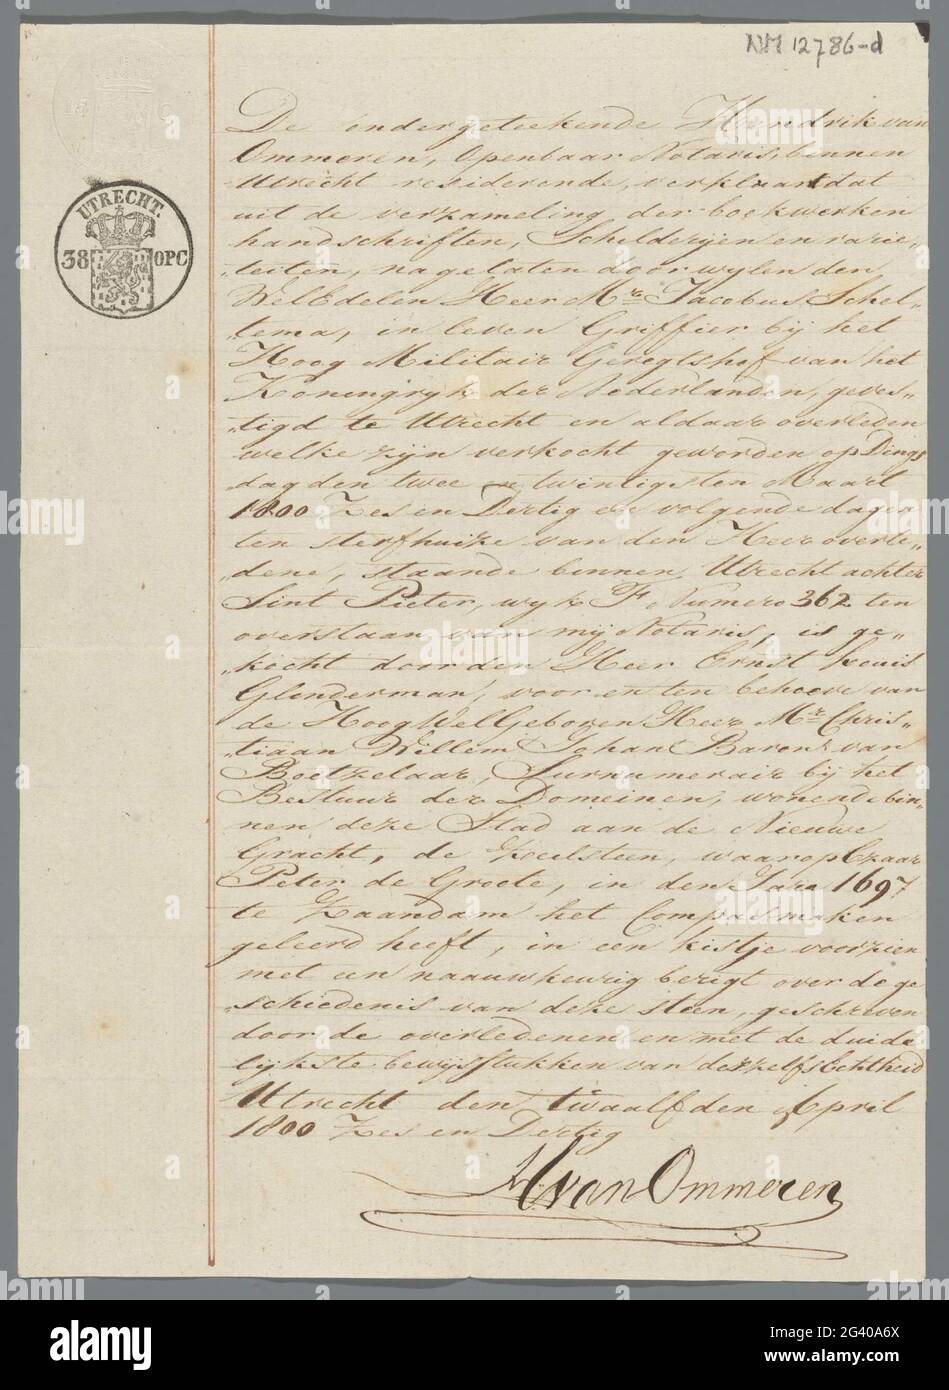 NM 12786-d
UTRECHT.
38 OPC
De ondergeteekende Hendrik van
Ommeren, Openbaar Notaris, binnen
Utrecht resideerende, verklaart dat
uit de verzameling der boekwerken
handschriften, Schilderijen en varie„
„teiten, nagelaten door wylen den
WelEdelen Heer Mr. Jacobus Schel„
„tema, in leven Griffier bij het
Hoog Militair Geregtshof van het
Koningryk der Nederlanden, geves„
„tigd te Utrecht en aldaar overleden
welke zijn verkocht geworden op Dings
dag den twee en twintigsten Maart
1800 Zes en Dertig en volgende dagen
ten sterfhuize van den Heer overle„
„dene, staande binnen Utrecht achter
Sint Pieter, wyk F Numero 362 ten
overstaan van mij Notaris, is ge„
„kocht door den Heer Ernst Louis
Glinderman, voor en ten behoeve van
de HoogWelGeboren Heer Mr. Chris„
„tiaan Willem Johan Baron van
Boetzelaar, Surnumerair bij het
Bestuur der Domeinen, wonende bin„
nen deze Stad aan de Nieuwe
Gracht, de Zeilsteen, waarop Czaar
Peter de Groote, in den Jare 1697
te Zaandam het Compasmaken
geleerd heeft, in een kistje voorzien
met een naauwkeurig berigt over de ge
„schiedenis van deze steen, geschreven
door de overledenen en met de duide
lijkste bewijsstukken van deszelfs Echtheid
Utrecht den twaalfden April
1800 Zes en Dertig
H van Ommeren
alamy
Image ID: 2G40A6X
www.alamy.com